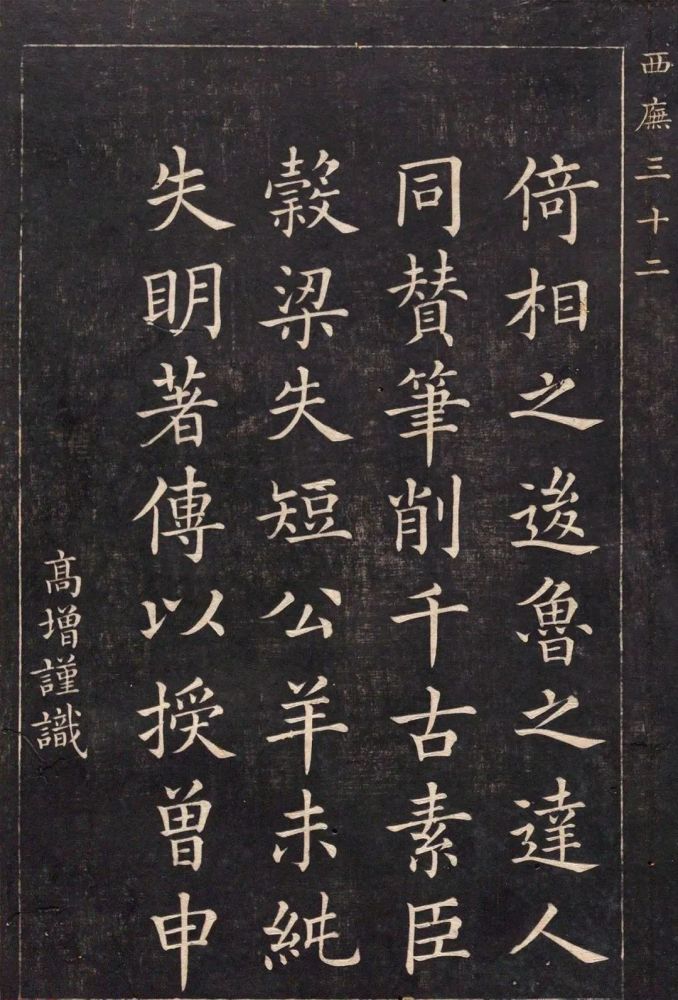 西廡三十二
倚相之後魯之達人
同賛筆削千古素臣
穀梁失短公羊未純
失明著傳以授曽申
髙增謹識